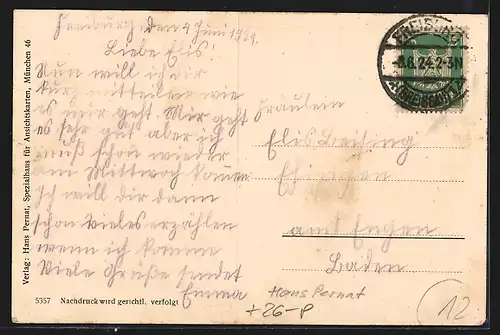 Freiburg den 4 Juni 1924.
Liebe Elis!
Nun will ich dir
kurz mitteilen wie
es mir geht. Mir geht
es sehr gut aber ich
muß schon wieder
am Mittwoch kommen
Ich will dir dann
schon Vieles erzählen
wenn ich komme
Viele Grüße sendet
Emma
Fräulein
Elis Beising
Ehingen
amt Engen
Baden
FREIBURG
6.24.2-3N
(BREISGAU)
Hans Pernat
+26-P
12
Verlag: Hans Pernat, Spezialhaus für Ansichtskarten, München 46
5357 Nachdruck wird gerichtl. verfolgt